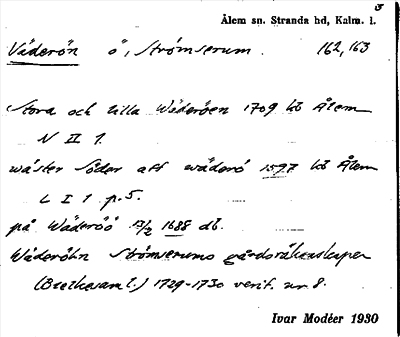 3
Ålem sn. Stranda hd, Kalm. l.
Väderön ö, Strömserum. 162,163
Stora och lilla Wäderöen 1709 kb Ålem
N II 1.
wäster Söder att wäderö 1597 kb Ålem
L I 1 p. 5.
på Wäderöö 13/2 1688 db.
Wäderöhn Strömserums gårdsräkenskaper
(Brelkesaml.) 1729-1730 verif. nr 8.
Ivar Modéer 1930